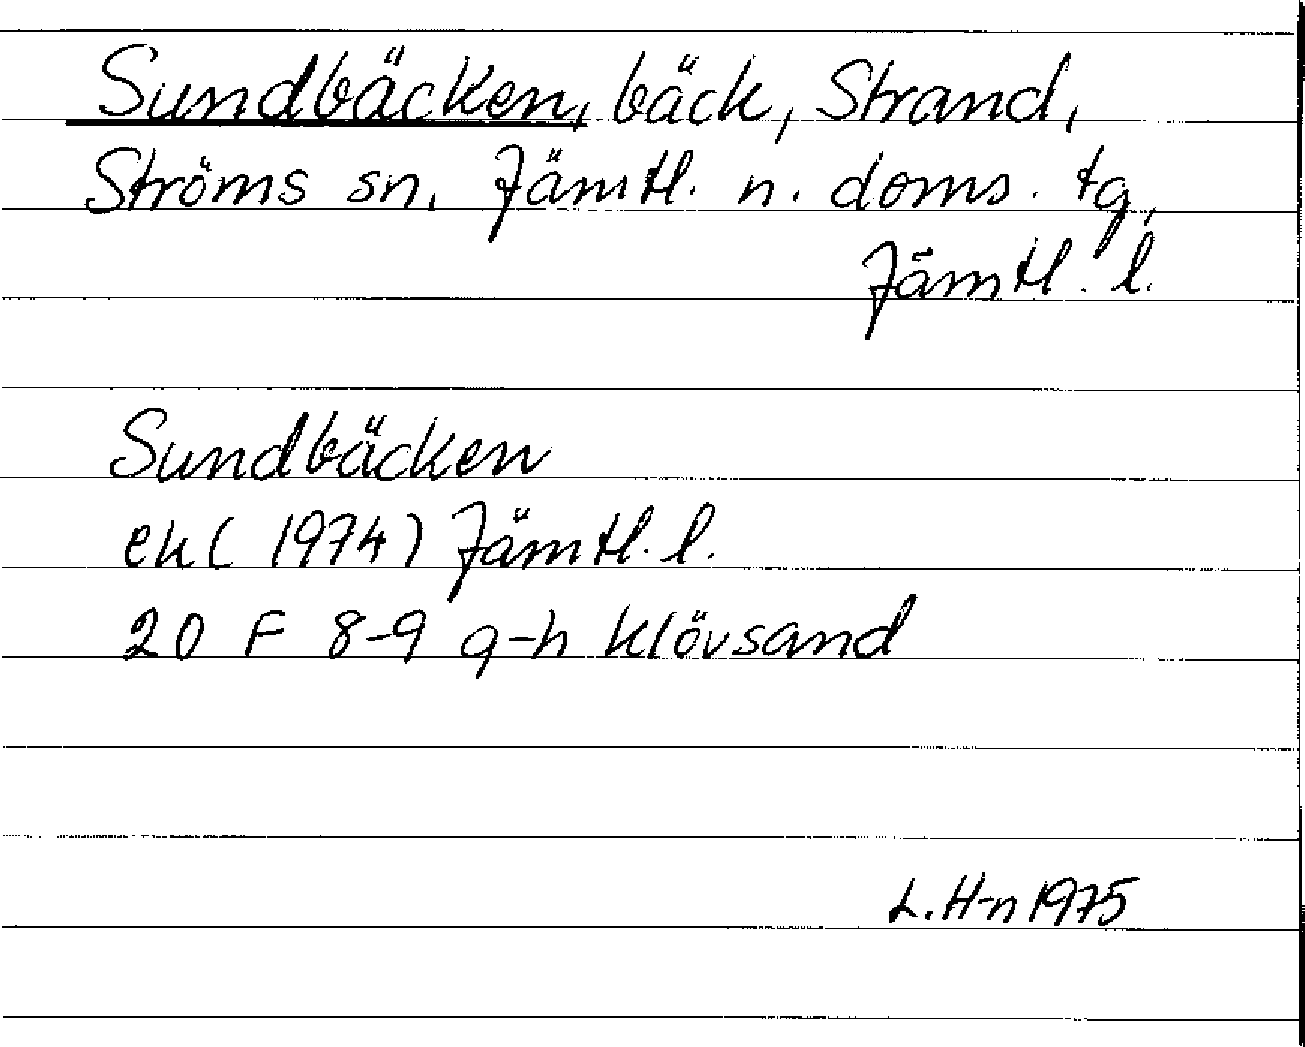 Sundbäcken, bäck, Strand,
Ströms sn, Jämtl. n. doms. tg,
Jämtl. l.
Sundbäcken
ek (1974) Jämtl. l.
20 F 8-9 g-h Klövsand
L. H-n 1975